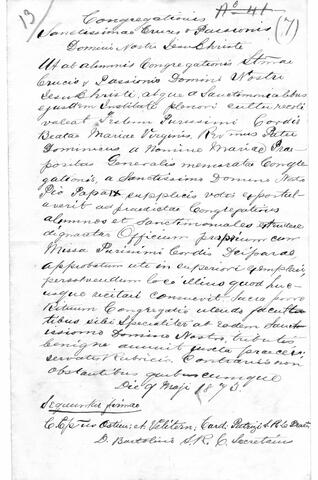 13)
No 41
(7)
Congregationis
Sanctissimae Crucis & Passionis
Domini Nostri Jesu Christi
Ut ab alumnis Congregationis Stmae
Crucis & Passionis Domini Nostri
Jesu Christi, atque a Sanctimonialibus
ejusdem Instituti sinceri cultu recoli
valeat Festum Purissimi Cordis
Beatae Mariae Virginis, Rev mus Pater
Dominicus a Nomine Mariae Prae-
positus Generalis memoratae Congre
gationis, a Sanctissimo Domino Nostro
Pio Papa IX supplicis votis expostul-
averit ut praedictae Congregationis
alumnos et Sanctimoniales
dignatus Officium proprium cum
Missa Purissimi Cordis Deiparae
approbatum uti in superiori exemplari,
persolvendum loco illius quod huc-
usque recitari consuevit Sacra porro
Rituum Congregatio utendo faculta-
tibus sibi specialiter ab eodem Sanct-
issimo Domino Nostro tributis
benigne annuit juxta preces;
servatis Rubricis. Contrariis non
obstantibus quibuscumque
Die 9 Maji 1873.
Sequuntur firmae
C. Epus Ostien. et Velitern. Card. Patrizi S.R.C. Praef.
D. Bartolini S.R.C. Secretarius